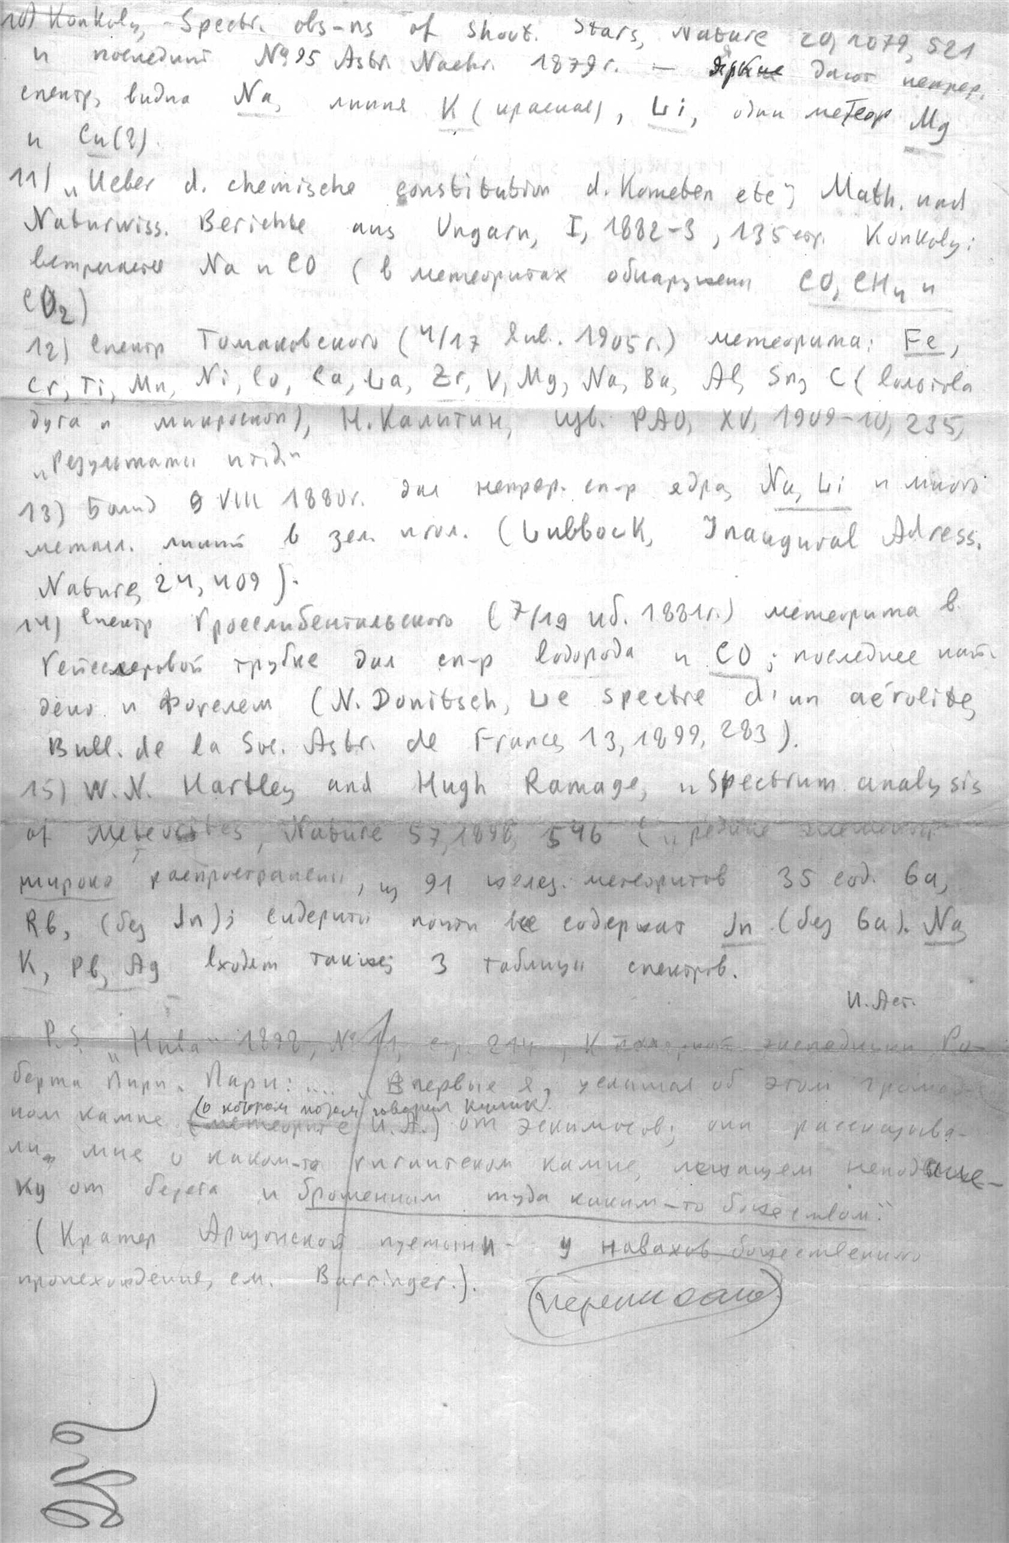 10) Konkoly, - Spectr. obs-ns of Shoot. Stars, Nature 20, 1079, 521
и последний №95 Astr. Nachr. 1879г. — яркие дают непрер.
спектр, видна Na, линия K (красная), Li, один метеор Mg
и Cu(?).
11) „Ueber d. chemische constitution d. Kometen etc", Math. und
Naturwiss. Berichte aus Ungarn, I, 1882-3, 135 стр. Konkoly:
встречается Na и CO (в метеоритах обнаружены CO, CH4 и
CO2)
12) Спектр Томаковского (4/17 Янв. 1905г.) метеорита: Fe,
Cr, Ti, Mn, Ni, Co, Ca, La, Zr, V, Mg, Na, Ba, Al, Sn, C (Вольтова
дуга и микроскоп), Н.Калитин, Изв. РАО, XV, 1909-10, 235,
„Результаты
13) Болид 9 VIII 1880г. дал непрер. сп-р ядра, Na, Li и много
металл. линий в зел. (Lubbock, Inaugural Adress,
Nature, 24, 409).
14) Спектр Гросслибентальского (7/19 нб. 1881г.) метеорита в
Гейсслеровой трубке дал сп-р водорода и CO; последнее най-
дено и Фогелем (N. Donitsch, Le spectre d'un aérolite,
Bull. de la Soc. Astr. de France, 13, 1899, 283).
15) W.N. Hartley and Hugh Ramage, „Spectrum analysis
of Meteorites, Nature 57, 1898, 546 („редкие элементы
широко распространены, из 91 желез. метеоритов 35 сод. Ga,
Rb, (без In); сидериты почти все содержат In (без Ga). Na,
K, Pb, Ag входят также; 3 таблицы спектров.
И. Аст.
P.S. „Нива" 1898, №11, стр. 214, К полярной экспедиции Ро-
берта Пири. Пири: .... Впервые я услышал об этом громад-
ном камне (о котором потом говорил Кулик) (метеорите И.А.) от эскимосов; они рассказыва-
ли мне о каком-то гигантском камне, лежащем неподале-
ку от берега и брошенным туда каким-то божеством."
(Кратер Аризонской пустыни - у навахов божественного
происхождения, см. Barringer.).
переписано